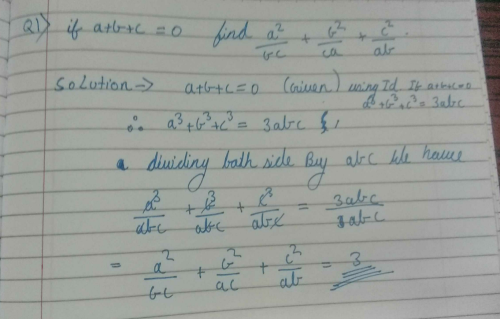 Q1) if a+b+c = 0 find a²/bc + b²/ca + c²/ab.
Solution → a+b+c=0 (Given) using Id If a+b+c=0
a³+b³+c³=3abc
∴ a³+b³+c³ = 3abc
dividing both side By abc We have
a³/abc + b³/abc + c³/abc = 3abc/abc
= a²/bc + b²/ac + c²/ab = 3